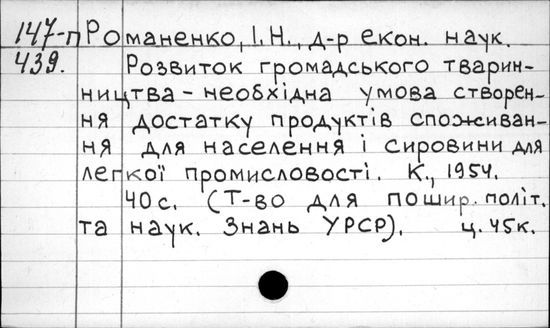 147-п Романенко, І.Н., д-р екон. наук.
439. Розвиток громадського тварин-
ництва - необхідна умова створен-
ня достатку продуктів споживан-
ня для населення і сировини для
легкої промисловості. К., 1954.
40 с. (Т-во для пошир. політ.
та наук. Знань УРСР). ц. 45к.